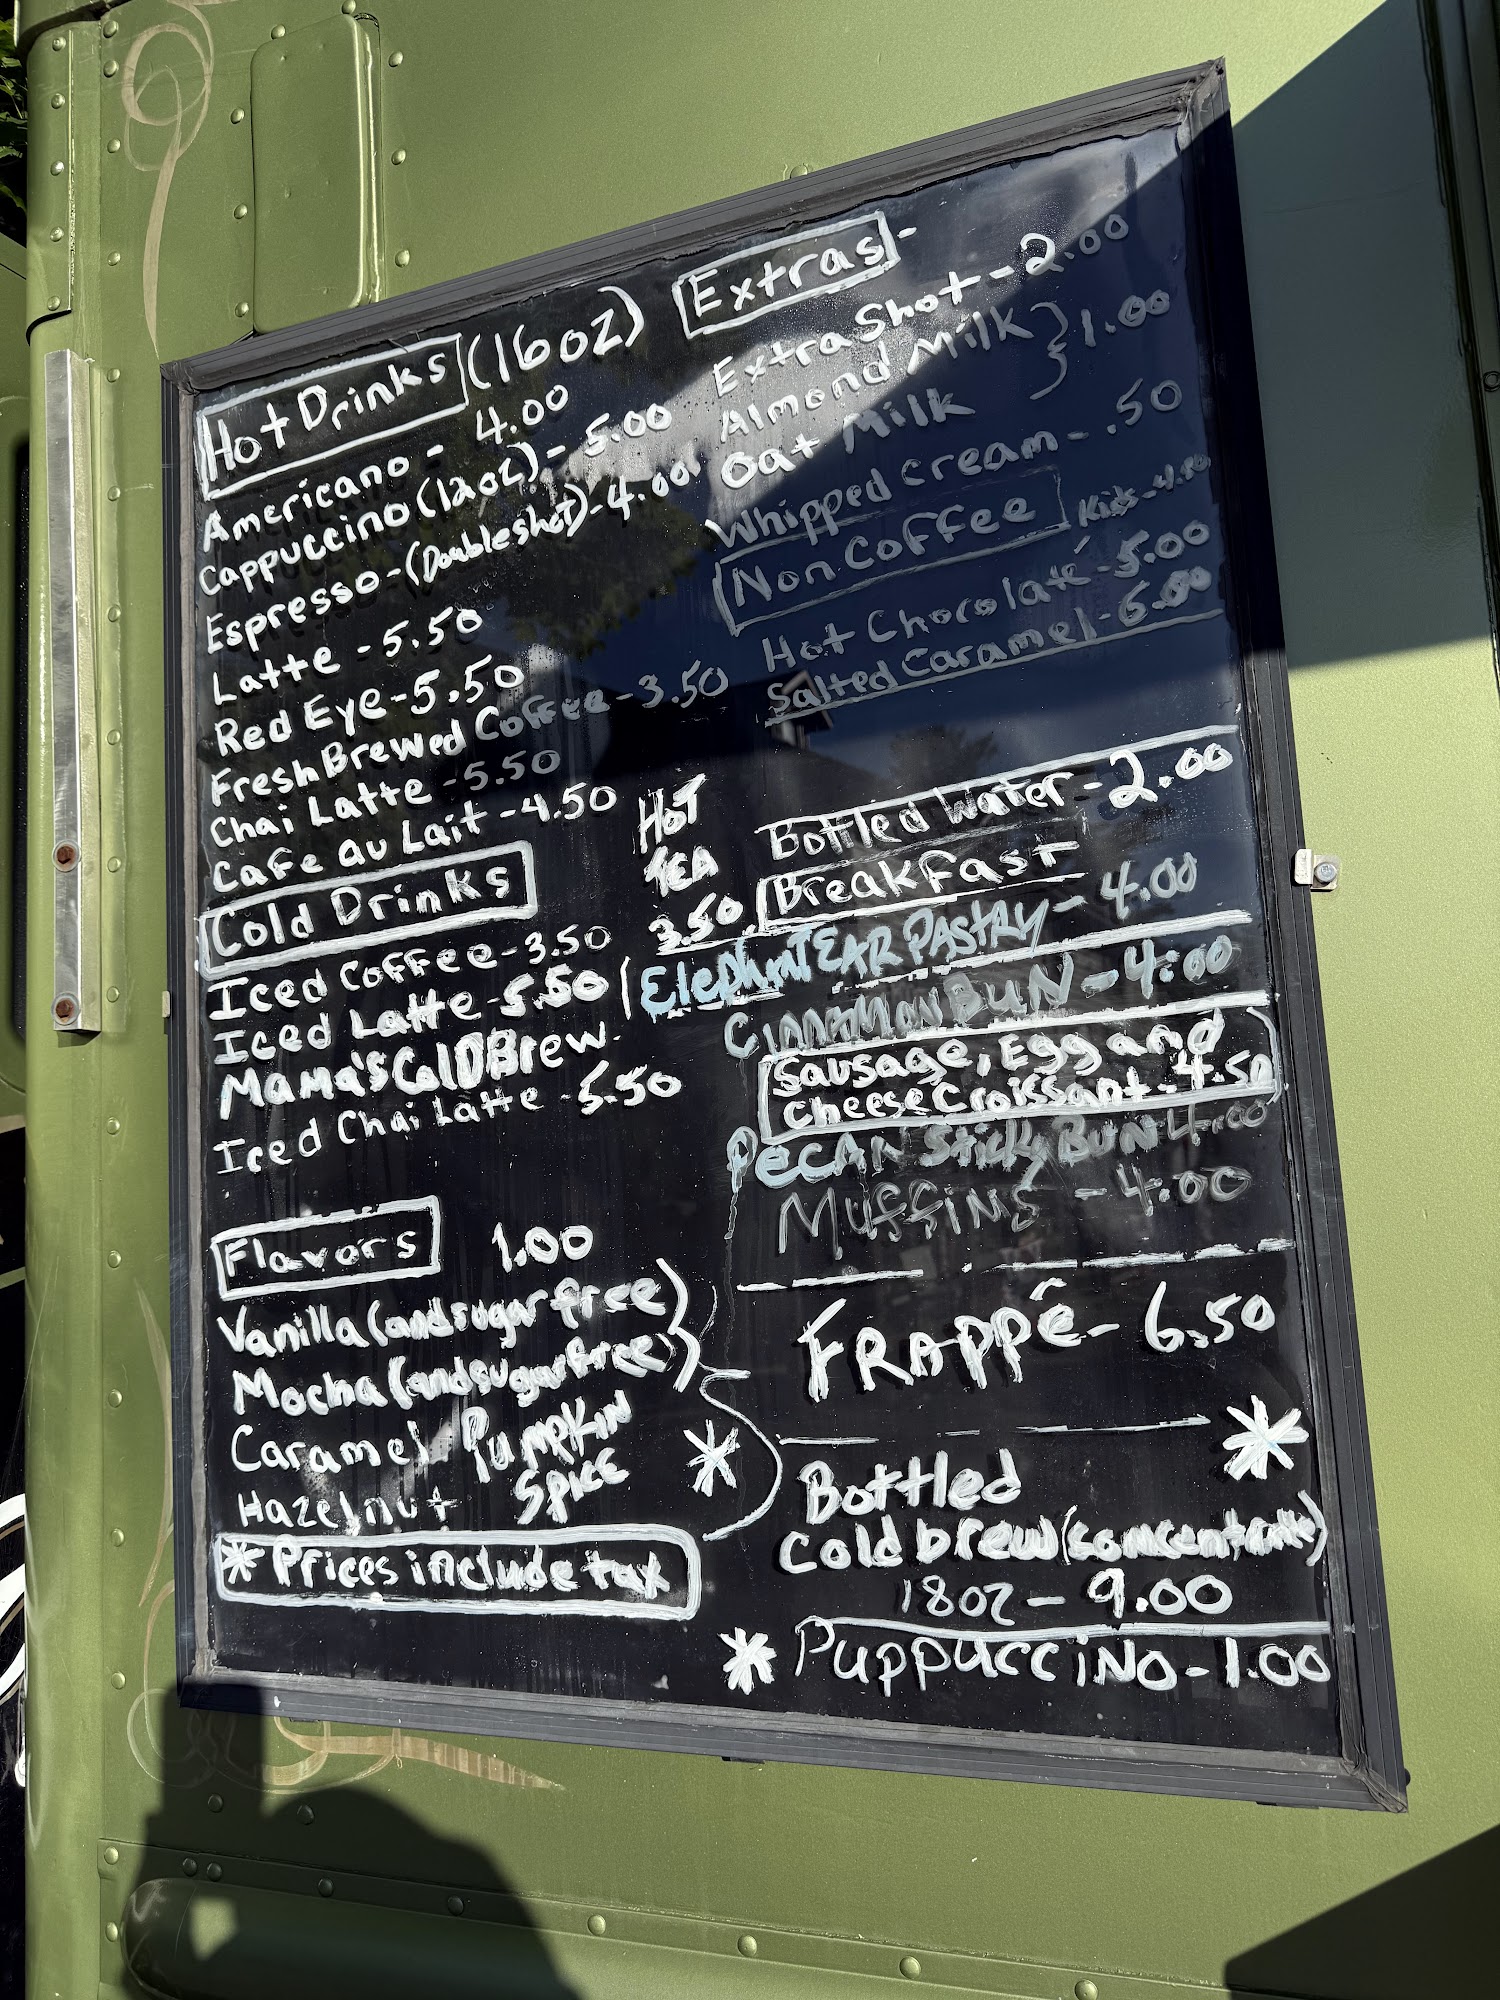 Hot Drinks (16oz)
Americano - 4.00
Cappuccino (12oz) - 5.00
Espresso - (Doubleshot) - 4.00
Latte - 5.50
Red Eye - 5.50
Fresh Brewed Coffee - 3.50
Chai Latte - 5.50
Cafe au Lait - 4.50
HOT
TEA
3.50
Cold Drinks
Iced Coffee - 3.50
Iced Latte - 5.50
MAMA'S ColD Brew
Iced Chai Latte - 5.50
Flavors 1.00
Vanilla (and sugar free)
Mocha (and sugar free)
Caramel
Hazelnut
PUMPKIN
SPICE
*
* Prices include tax
Extras -
Extra Shot - 2.00
Almond Milk } 1.00
Oat Milk
Whipped Cream - .50
Non Coffee
Kids - 4.00
Hot Chocolate - 5.00
Salted Caramel -
Bottled Water - 2.00
Breakfast
ElephANT EAR PASTRY - 4.00
CINNAMON BUN - 4.00
Sausage, Egg and
Cheese Croissant - 4.50
PECAN Sticky BUN 4.00
MUFFINS - 4.00
FRAPPÉ - 6.50
*
Bottled
Cold brew (concentrate)
18oz - 9.00
* PuppucciNo - 1.00